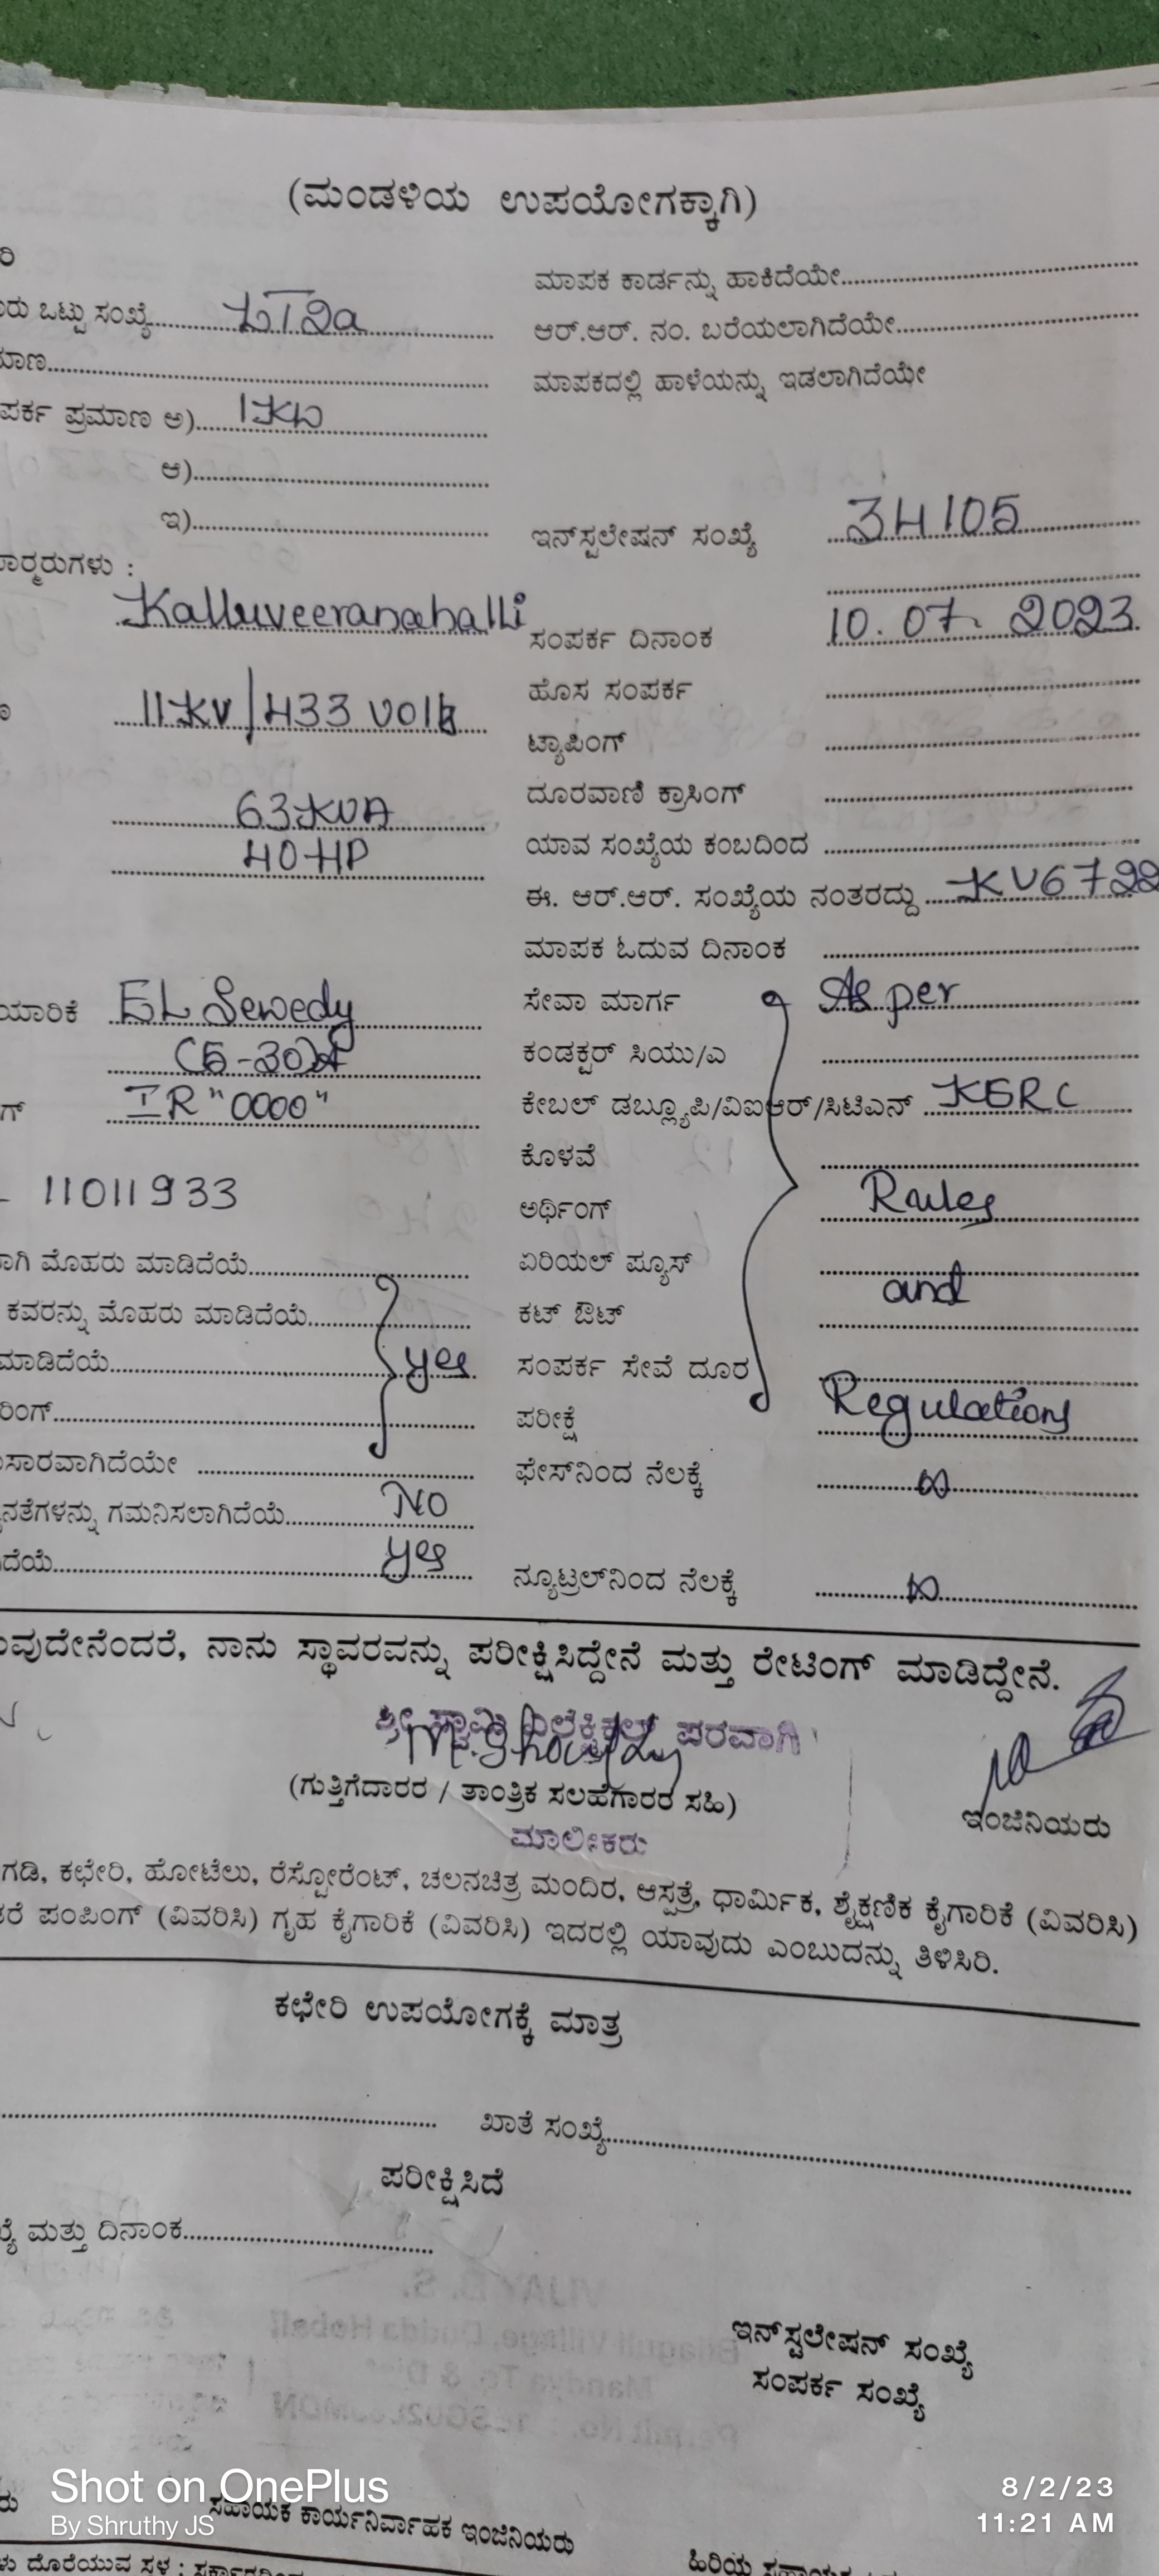 (ಮಂಡಳಿಯ ಉಪಯೋಗಕ್ಕಾಗಿ)
ರಿ
ಮಾಪಕ ಕಾರ್ಡನ್ನು ಹಾಕಿದೆಯೇ
ರು ಒಟ್ಟು ಸಂಖ್ಯೆ LT2a
ಆರ್.ಆರ್. ನಂ. ಬರೆಯಲಾಗಿದೆಯೇ
ಮಾಣ
ಮಾಪಕದಲ್ಲಿ ಹಾಳೆಯನ್ನು ಇಡಲಾಗಿದೆಯೇ
ಪರ್ಕ ಪ್ರಮಾಣ ಅ) 1KW
ಆ)
ಇ)
ಇನ್‌ಸ್ಟಲೇಷನ್ ಸಂಖ್ಯೆ 34105
ಾರ್ಮರುಗಳು :
Kalluveeranahalli
ಸಂಪರ್ಕ ದಿನಾಂಕ 10.07.2023
ಹೊಸ ಸಂಪರ್ಕ
11KV/433 Volts
ಟ್ಯಾಪಿಂಗ್
ದೂರವಾಣಿ ಕ್ರಾಸಿಂಗ್
63KVA
40HP
ಯಾವ ಸಂಖ್ಯೆಯ ಕಂಬದಿಂದ
ಈ. ಆರ್.ಆರ್. ಸಂಖ್ಯೆಯ ನಂತರದ್ದು KV6722
ಮಾಪಕ ಓದುವ ದಿನಾಂಕ
ಯಾರಿಕೆ EL Sewedy
ಸೇವಾ ಮಾರ್ಗ As per
(5-30)A
ಕಂಡಕ್ಟರ್ ಸಿಯು/ಎ
ಗ್ IR "0000"
ಕೇಬಲ್ ಡಬ್ಲ್ಯೂಪಿ/ವಿಐಆರ್/ಸಿಟಿಎನ್ KERC
ಕೊಳವೆ
- 11011933
ಅರ್ಥಿಂಗ್ Rules
ಾಗಿ ಮೊಹರು ಮಾಡಿದೆಯೆ
ಏರಿಯಲ್ ಪ್ಯೂಸ್ and
ಕವರನ್ನು ಮೊಹರು ಮಾಡಿದೆಯೆ
ಕಟ್ ಔಟ್
ಮಾಡಿದೆಯೆ
ಸಂಪರ್ಕ ಸೇವೆ ದೂರ
ರಿಂಗ್
ಪರೀಕ್ಷೆ Regulations
ುಸಾರವಾಗಿದೆಯೇ
ಫೇಸ್‌ನಿಂದ ನೆಲಕ್ಕೆ ∞
ನತೆಗಳನ್ನು ಗಮನಿಸಲಾಗಿದೆಯೆ NO
ದೆಯೆ
ನ್ಯೂಟ್ರಲ್‌ನಿಂದ ನೆಲಕ್ಕೆ ∞
ುವುದೇನೆಂದರೆ, ನಾನು ಸ್ಥಾವರವನ್ನು ಪರೀಕ್ಷಿಸಿದ್ದೇನೆ ಮತ್ತು ರೇಟಿಂಗ್ ಮಾಡಿದ್ದೇನೆ.
ಶ್ರೀ ಸ್ವಾಮಿ ಎಲೆಕ್ಟ್ರಿಕಲ್ಸ್ ಪರವಾಗಿ
(ಗುತ್ತಿಗೆದಾರರ / ತಾಂತ್ರಿಕ ಸಲಹೆಗಾರರ ಸಹಿ)
ಇಂಜಿನಿಯರು
ಮಾಲೀಕರು
ಗಡಿ, ಕಛೇರಿ, ಹೋಟೆಲು, ರೆಸ್ಟೋರೆಂಟ್, ಚಲನಚಿತ್ರ ಮಂದಿರ, ಆಸ್ಪತ್ರೆ, ಧಾರ್ಮಿಕ, ಶೈಕ್ಷಣಿಕ ಕೈಗಾರಿಕೆ (ವಿವರಿಸಿ)
ಕರೆ ಪಂಪಿಂಗ್ (ವಿವರಿಸಿ) ಗೃಹ ಕೈಗಾರಿಕೆ (ವಿವರಿಸಿ) ಇದರಲ್ಲಿ ಯಾವುದು ಎಂಬುದನ್ನು ತಿಳಿಸಿರಿ.
ಕಛೇರಿ ಉಪಯೋಗಕ್ಕೆ ಮಾತ್ರ
ಖಾತೆ ಸಂಖ್ಯೆ
ಪರೀಕ್ಷಿಸಿದೆ
ಖ್ಯೆ ಮತ್ತು ದಿನಾಂಕ
ಇನ್‌ಸ್ಟಲೇಷನ್ ಸಂಖ್ಯೆ
ಸಂಪರ್ಕ ಸಂಖ್ಯೆ
Shot on OnePlus
By Shruthy JS
8/2/23
11:21 AM
ರು ಸಹಾಯಕ ಕಾರ್ಯನಿರ್ವಾಹಕ ಇಂಜಿನಿಯರು
ಹಿರಿಯ ಸಹಾಯಕ
ಳು ದೊರೆಯುವ ಸ್ಥಳ :